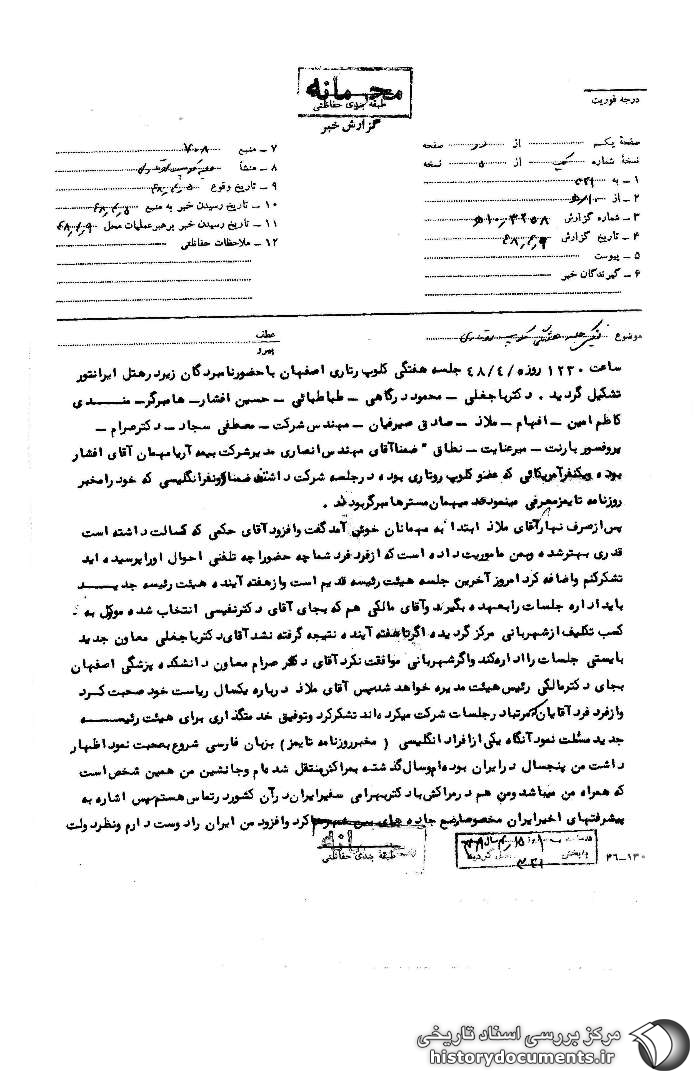 محرمانه
طبقه بندی حفاظتی
گزارش خبر
درجه فوریت
صفحه یکم از دو صفحه
نسخه شماره یک از ۵ نسخه
۱ ـ به ۳۴۱
۲ ـ از ۱۰ه
۳ ـ شماره گزارش
۴ ـ تاریخ گزارش ۴۸٫۴٫۹
۵ ـ پیوست
۶ ـ گیرندگان خبر
۷ ـ منبع ۷۰۸
۸ ـ منشأ
۹ ـ تاریخ وقوع ۴۸٫۴٫۵
۱۰ ـ تاریخ رسیدن خبر به منبع ۴۸٫۴٫۵
۱۱ ـ تاریخ رسیدن خبر برهبر عملیات محل ۴۸٫۴٫۹
۱۲ ـ ملاحظات حفاظتی
موضوع
عطف
پیرو
ساعت ۱۲۳۰ روز ۴۸/۴/ جلسه هفتگی کلوپ رتاری اصفهان با حضور نامبردگان زیر در هتل ایرانتور
تشکیل گردید . دکتر باجغلی ـ محمود درگاهی ـ طباطبائی ـ حسین افشار ـ هامبرگر ـ
کاظم امین ـ افهام ـ ملاذ ـ صادق صیرفیان ـ مهندس شرکت ـ مصطفی سجاد ـ دکتر صرام ـ
پروفسور بارنت ـ میرعنایت ـ نطاق " ضمنا آقای مهندس انصاری مدیر شرکت بیمه آریا مهمان آقای افشار
بوده ویکنفر آمریکائی که عضو کلوپ روتاری بوده در جلسه شرکت داشتند ضمنا دونفر انگلیسی که خود را مخبر
روزنامه تایمز معرفی مینمودند میهمان مستر هامبرگر بودند .
پس از صرف نهار آقای ملاذ ابتدا به مهمانان خوش آمد گفت و افزود آقای حکمی که کسالت داشته است
قدری بهتر شده و بمن ماموریت داده است که از فرد فرد شما چه حضورا چه تلفنی احوال اورا پرسیده اید
تشکر کنم و اضافه کرد امروز آخرین جلسه هیئت رئیسه قدیم است و از هفته آینده هیئت رئیسه جدید
باید اداره جلسات را بعهده بگیرند و آقای مالکی هم که بجای آقای دکتر نفیسی انتخاب شده موکول به
کسب تکلیف از شهربانی مرکز گردیده اگر تا هفته آینده نتیجه گرفته نشد آقای دکتر باجغلی معاون جدید
بایستی جلسات را اداره کند و اگر شهربانی موافقت نکرد آقای دکتر صرام معاون دانشکده پزشکی اصفهان
بجای دکتر مالکی رئیس هیئت مدیره خواهد شد سپس آقای ملاذ درباره یکسال ریاست خود صحبت کرد
و از فرد فرد آقایان که مرتباد رجلسات شرکت میکرده اند تشکر کرد و توفیق خدمتگذاری برای هیئت رئیسه
جدید مسئلت نمود آنگاه یکی از افراد انگلیسی ( مخبر روزنامه تایمز ) بزبان فارسی شروع بصحبت نمود اظهار
داشت من پنجسال در ایران بوده ام و سال گذشته بمراکش منتقل شده ام و جانشین من همین شخص است
که همراه من میباشد و من هم در مراکش با دکتر بهرامی سفیر ایران در آن کشور در تماس هستم سپس اشاره به
پیشرفتهای اخیر ایران مخصوصا وضع جاده های بین کرد و افزود من ایران را دوست دارم و نظر دولت
طبقه بندی حفاظتی
۳۴۱
۲۶-۱۳۰
مرکز بررسی اسناد تاریخی
historydocuments.ir